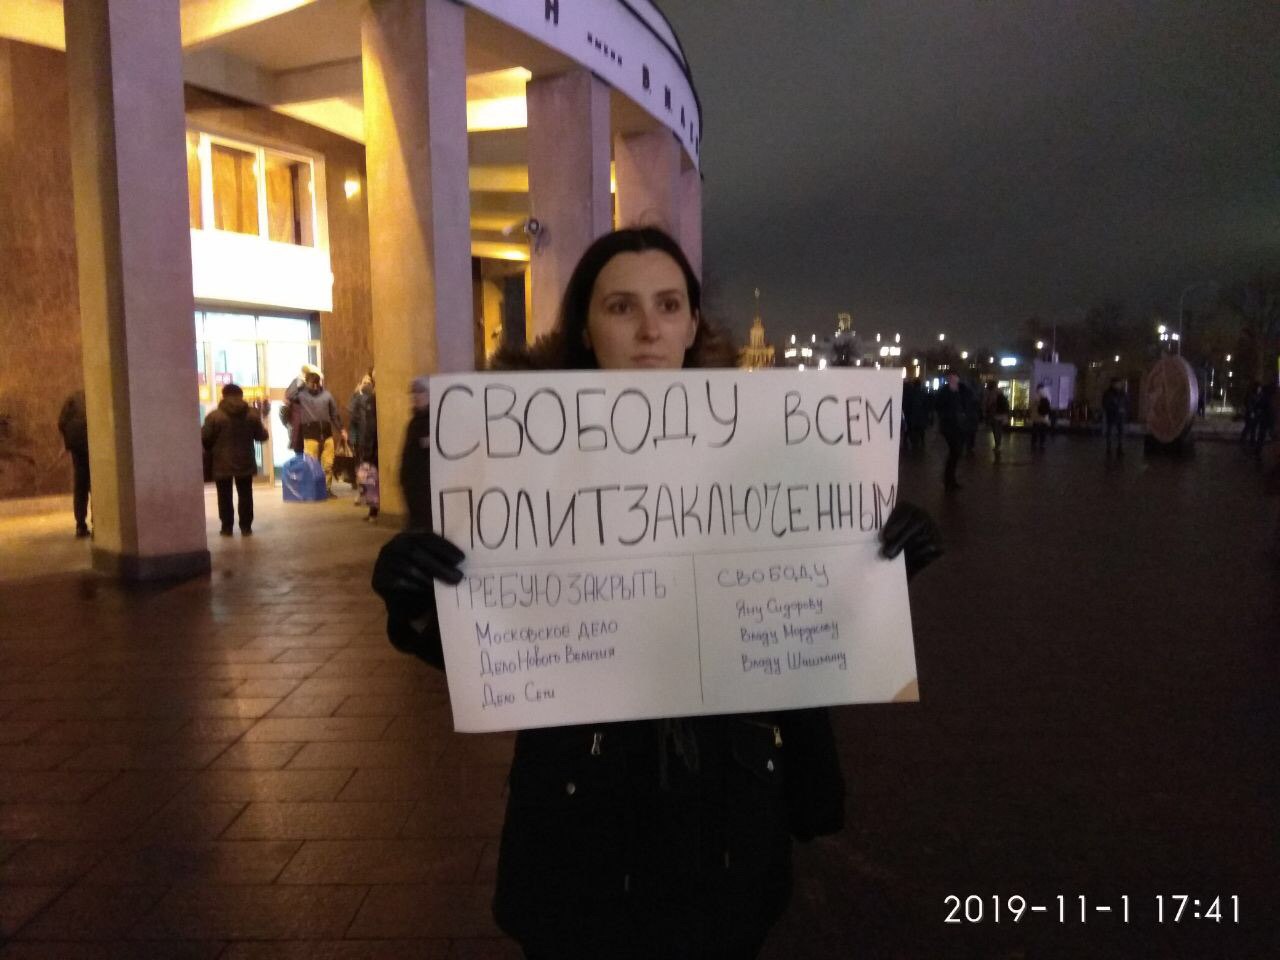 Н ИМЕНИ В.И.ЛЕ
СВОБОДУ ВСЕМ
ПОЛИТЗАКЛЮЧЕННЫМ
ТРЕБУЮ ЗАКРЫТЬ
Московское дело
Дело Нового Величия
Дело Сети
СВОБОДУ
Яну Сидорову
Владу Мордасову
Владу
2019-11-1 17:41